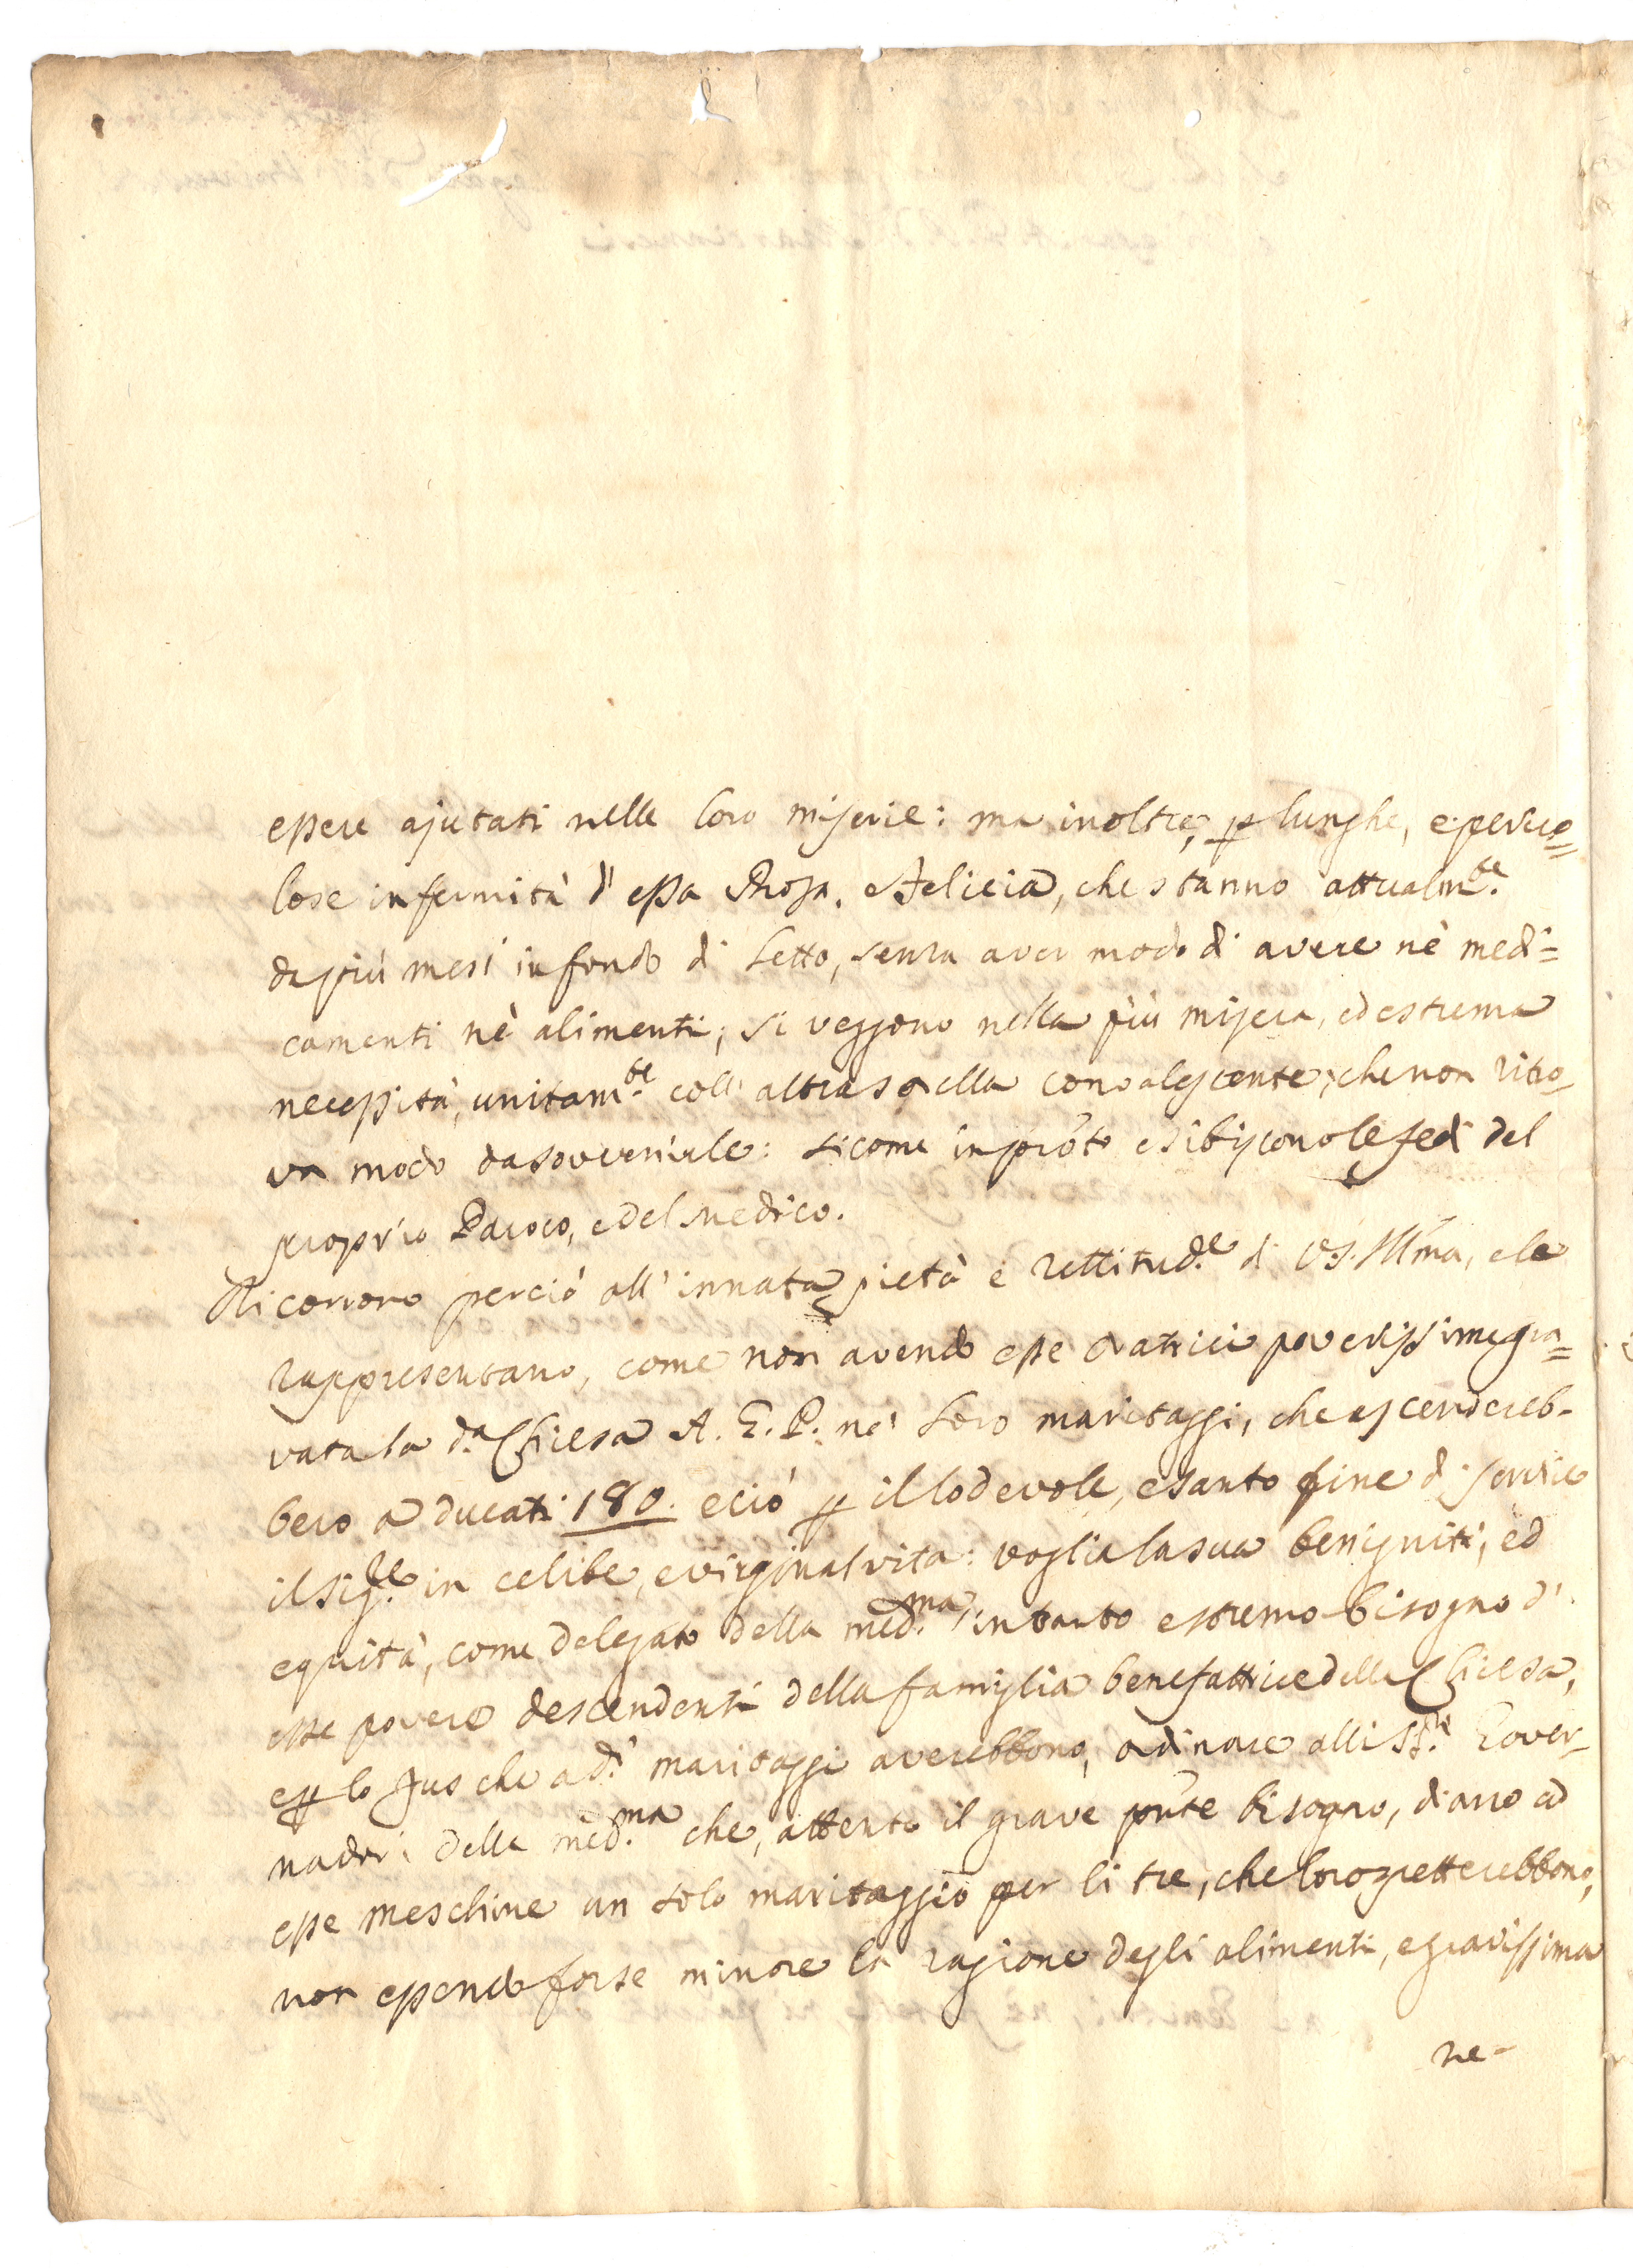 essere ajutati nelle loro miserie: ma inoltre, p lunghe, e perico=
lose infermità d' essa Rosa, e Felicia, che stanno attualm.te
da più mesi in fondo di letto, senza aver modo di avere nè medi=
camenti nè alimenti; si veggono nella più misera, ed estrema
necessità, unitam.te coll' altra sorella convalescente, che non ritro-
va modo da sovvenirle: sicome in pronto esibiscono le fedi del
proprio Paroco, e del Medico.
Ricorrono perciò all' innata pietà e rettitud.e di V.S. Illma, e le
rappresentano, come non avendo esse oratrici poverissime gra=
vata la d.a Chiesa A. G. P. ne' loro maritaggi, che ascendereb-
bero a ducati 180. e ciò p il lodevole, e santo fine di servire
il Sig.re in celibe, e virginal vita: voglia la sua benignità, ed
equità, come delegato della med.ma, in tanto estremo bisogno d'
esse povere descendenti della famiglia benefattrice della Chiesa,
e p lo Jus che a d.i maritaggi averebbono, ordinare alli SS.ri Gover-
nadori della med.ma che, attento il grave pnte bisogno, diano ad
esse meschine un solo maritaggio per li tre, che loro spetterebbono,
non essendo forse minore la ragione degli alimenti, e gravissima
ne-